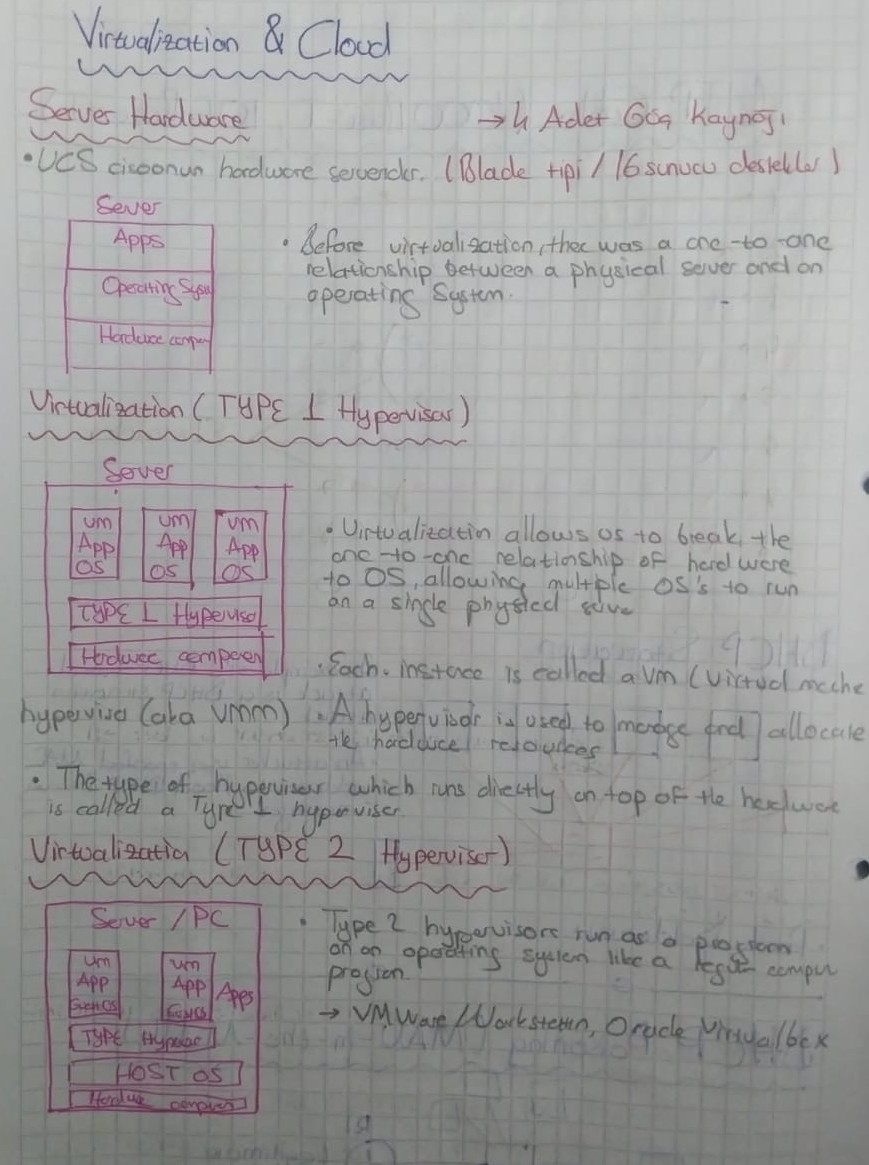 Virtualization & Cloud
Server Hardware → 4 Adet Güç Kaynağı
• UCS cisconun hardware serverıdır. (Blade tipi / 16 sunucu destekler)
Server
Apps
Operating Sysm
Hardware compon
• Before virtualization, ther was a one-to-one
relationship between a physical server and an
operating System.
Virtualization (TYPE 1 Hypervisor)
Server
VM VM VM
App App App
OS OS OS
TYPE 1 Hypervisor
Hardware componen
• Virtualization allows us to break the
one-to-one relationship of hardware
to OS, allowing multiple OS's to run
on a single physical serve
• Each instance is called a VM (Virtual mache
hypervisor (aka VMM) • A hypervisor is used to manage and allocate
the hardware resources
• The type of hypervisor which runs directly on top of the hardware
is called a Type 1 hypervisor
Virtualization (TYPE 2 Hypervisor)
Server / PC
VM VM
App App Apps
TYPE
HOST OS
Hardware
• Type 2 hypervisors run as a program
on an operating system like a regular compu
program
→ VMWare/Workstation, Oracle Virtualbox